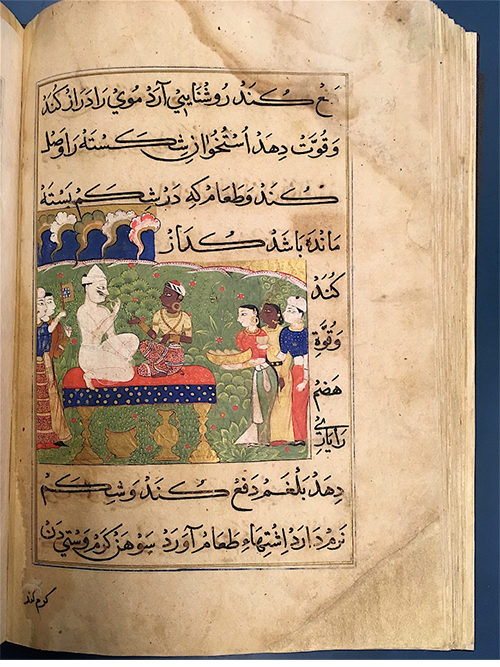 کند روشنایی آرد موی را دراز کند
و قوّت دهد استخوان شکسته را وصل
کند و طعام که در شکم بسته
مانده باشد کداز
کند
و قوّة
هضم
را یاری
دهد بلغم دفع کند و شکم
نرم دارد اشتهاء طعام آورد